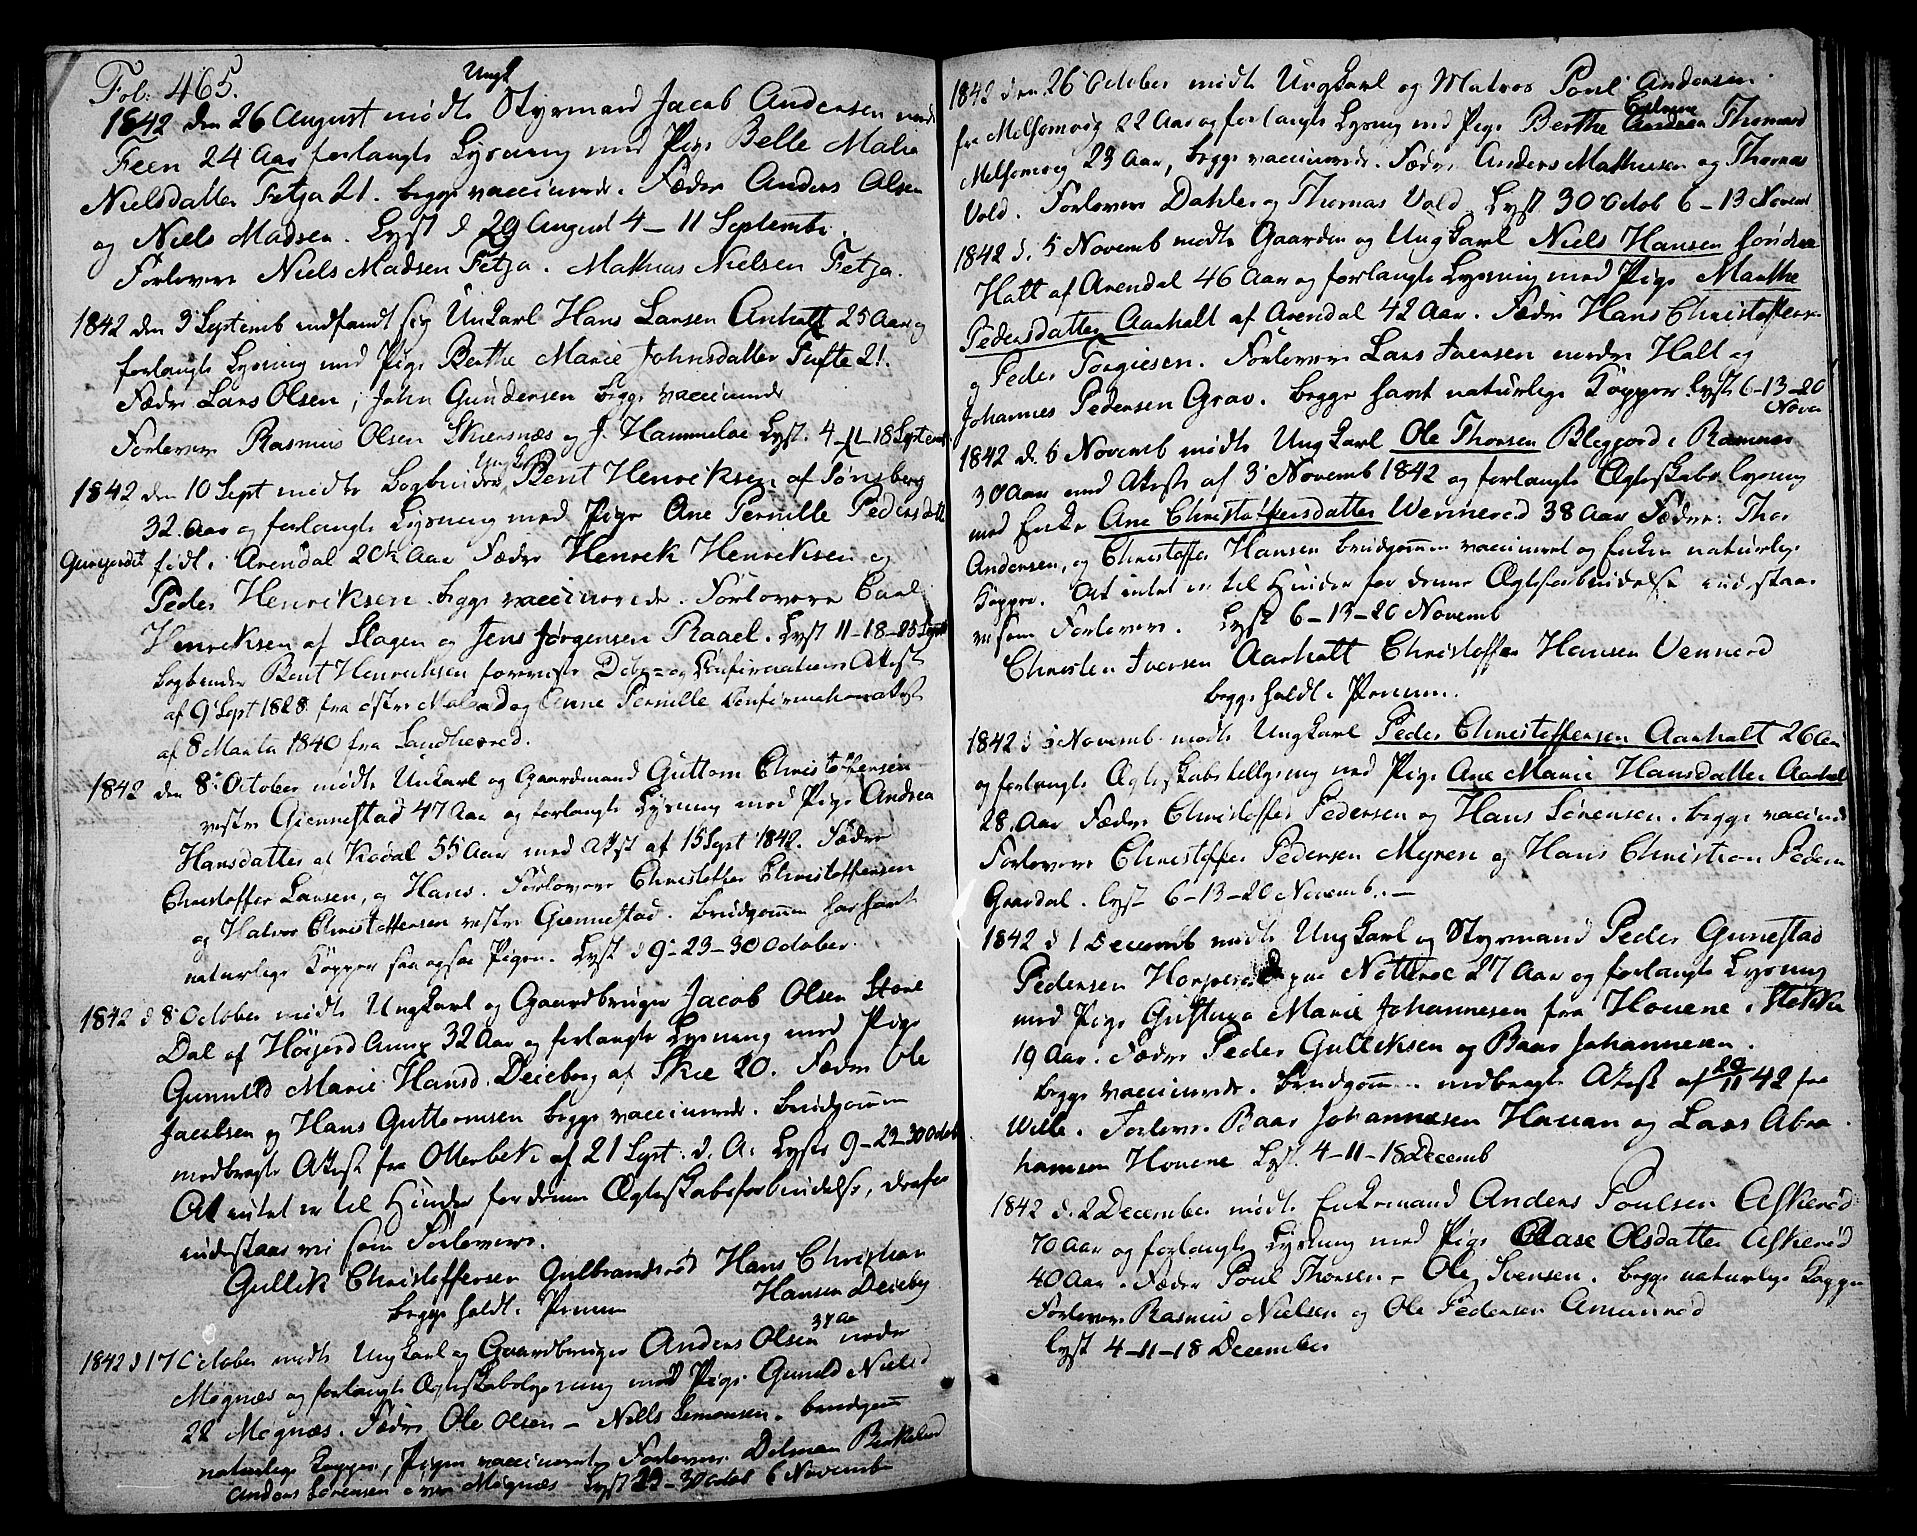 Fol: 465.
Ungk
1842 den 26 August mødte Styrmand Jacob Andersen
Feen 24 Aar forlangte Lysning med Pige Belle Malia
Nielsdatter Fetja 21. begge vaccinerede. Fædre Anders Olsen
og Niels Madsen. Lyst d 29 August 4 – 11 Septembr.
Forlovere Niels Madsen Fetja. Mathias Nielsen Fetja.
1842 den 3 Septemb indfandt sig Unkarl Hans Larsen Anholt 25 Aar og
forlangte Lysning med Pige Berthe Marie Johnsdatter Tufte 21.
Fædre Lars Olsen, John Gundersen begge vaccinerede
Forlovere Rasmus Olsen Skiersnæs og J. Hammeloe Lyst. 4–11–18 Septemb
Ungk
1842 den 10 Sept mødte Bogbinder Bent Henriksen af Tønsberg
32 Aar og forlangte Lysning med Pige Ane Pernille Pedersdatt
født i Arendal 20 1/2 Aar Fædre Henrek Henreksen og
Peder Henreksen. begge vaccinerede. Forlovere Carl
Henreksen af Slagen og Jens Jørgensen Raael. Lyst 11–18–25 Sept
Bogbender Bent Henreksen foreviste Døbe= og Confirmations Attest
af 9 Sept 1828 fra østre Moland og Anne Pernille Confirmationsattest
af 8 Marts 1840 fra Sandhered.
1842 den 8 October mødte Unkarl og Gaardmand Guttorm Christoffersen
vestre Giennestad 47 Aar og forlangte Lysning med Pige Andrea
Hansdatter af Kodal 55 Aar med Attst af 15 Sept 1842. Fædre
Christoffer Larsen, og Hans. Forlovere Christoffer Christoffersen
og Halvor Christoffersen vestre Giennestad. Brudgommen har havt
naturlige Kopper saa ogsaa Pigen. Lyst d 9–23–30 October.
1842 d 8 October mødte Ungkarl og Gaardbruger Jacob Olsen Store
Dal af Høijord Annex 32 Aar og forlangte Lysning med Pige
Gunnild Marie Hansd. Deieberg af Skie 20. Fædre Ole
Jacobsen og Hans Guttormsen begge vaccinerede. Brudgommen
medbragte Attest fra Otterbek af 21 Sept. d. A. Lyste 9–23–30 Octob
At intet er til Hinder for denne Ægteskabsforbindelse, derfor
indestaae vi som Forlovere.
Gullik Christoffersen Gulbrandsrød Hans Christian
Hansen Deieberg
begge holdt i Pennen
34 Aar
1842 d 17 October mødte Ungkarl og Gaardbruger Anders Olsen nedre
Møgnæs og forlangte Ægteskabslysning med Pige Gunild Nielsd
22 Møgnæs. Fædre Ole Olsen – Niels Semonsen. brudgom
naturlige Kopper, Pigen vaccineret Forlovere Delman Berkeland
Anders Sørensen øvre Møgnæs Lyst 23–30 Octob 6 Novembr
1842 den 26 October mødte Ungkarl og Matros Poul Andersen
fra Melsomvig 22 Aar og forlangte Lysning med Pige Berthe Thomasd
Melsomvig 23 Aar, begge vaccinerede. Fædre Anders Mathiesen og Thomas
Vold. Forlovere Dahler og Thomas Vold. Lyst 30 Octob 6–13 Novemb
1842 d. 5 Novemb mødte Gaardm og Ungkarl Niels Hansen søndre
Halt af Arendal 46 Aar og forlangte Lysning med Pige Marthe
Pedersdatter Aarholt af Arendal 42 Aar. Fædre Hans Christoffersen
og Peder Torgiesen. Forlovere Lars Iversen nordre Holt og
Johannes Pedersen Grav. begge havt naturlige Kopper. Lyst 6–13–20
Novem
1842 d. 5 Novemb mødte Ungkarl Ole Thorsen Blegjord i Ramnæs
30 Aar med Attest af 3 Novemb 1842 og forlangte Ægteskabs Lysning
med Enke Ane Christoffersdatter Wennerød 38 Aar Fædre: Thor
Andersen, og Christoffer Hansen brudgommen vaccineret og Enken naturlige
Kopper. At intet er til Hinder for denne Ægteforbindelse indestaae
vi som Forlovere. Lyst 6–13–20 Novemb
Christen Iversen Aarholt Christoffer Hansen Vennerød
begge holdt i Pennen.
1842 d 5 Novemb mødte Ungkarl Peder Christoffersen Aarholt 26 Aar
og forlangte Ægteskabslysning med Pige Ane Marie Hansdatter Aarholt
28 Aar Fædre Christoffer Pedersen og Hans Sørensen. begge vaccined
Forlovere Christoffer Pedersen Myren og Hans Christian Pedersen
Gravdal. Lyst 6–13–20 Novemb. –
1842 d 1 Decemb mødte Ungkarl og Styrmand Peder Gunestad
Pedersen paa Nøtterøe 27 Aar og forlangte Lysning
med Pige Gustava Marie Johannesen fra Houene i Stokke
19 Aar. Fædre Peder Gulliksen og Baar Johannesen.
begge vaccinerede. Brudgom. medbragte Attest af 29/11 42 fra
Wille. Forlovere Baar Johannesen Hauan og Lars Abra
hamsen Houene Lyst. 4–11–18 Decemb
1842 d. 2 December mødte Enkemand Anders Poulsen Askerød
70 Aar og forlangte Lysning med Pige Aase Olsdatter Askerød
40 Aar. Fædre Poul Thorsen – Ole Svensen. begge naturlige Kopper
Forlovere Rasmus Nielsen og Ole Pedersen Amunrød
Lyst 4–11–18 December